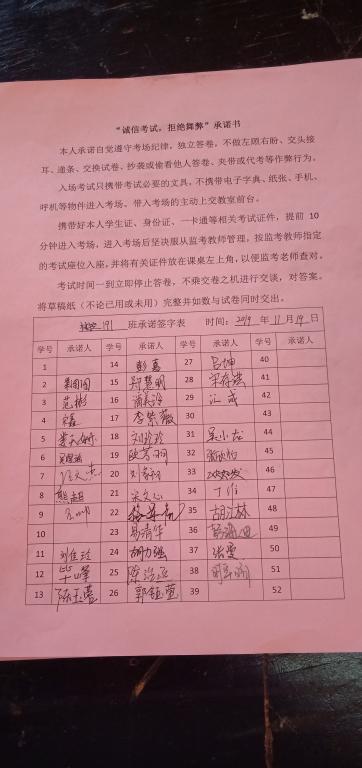 “诚信考试，拒绝舞弊”承诺书
本人承诺自觉遵守考场纪律，独立答卷，不做左顾右盼、交头接
耳、递条、交换试卷、抄袭或偷看他人答卷、夹带或代考等作弊行为。
入场考试只携带考试必要的文具，不携带电子字典、纸张、手机、
呼机等物件进入考场、带入考场的主动上交教室前台。
携带好本人学生证、身份证、一卡通等相关考试证件，提前 10
分钟进入考场，进入考场后坚决服从监考教师管理，按监考教师指定
的考试座位入座，并将有关证件放在课桌左上角，以便监考老师查对。
考试时间一到立即停止答卷，不乘交卷之机进行交谈，对答案。
将草稿纸（不论已用或未用）完整并如数与试卷同时交出。
191 班承诺签字表 时间：2019 年 11 月 19 日
学号 承诺人 学号 承诺人 学号 承诺人 学号 承诺人
1 14 彭嘉 27 吕坤 40
2 15 郑慧明 28 41
3 范彬 16 29 汇成 42
4 17 李紫薇 30 43
5 18 刘玲玲 31 吴小龙 44
6 19 欧芳羽 32 45
7 20 33 46
8 熊超 21 宋文心 34 丁维 47
9 22 35 胡江林 48
10 23 易清华 36 49
11 刘佳玲 24 胡力强 37 张曼 50
12 25 38 51
13 陈玉莹 26 郭钰萱 39 52